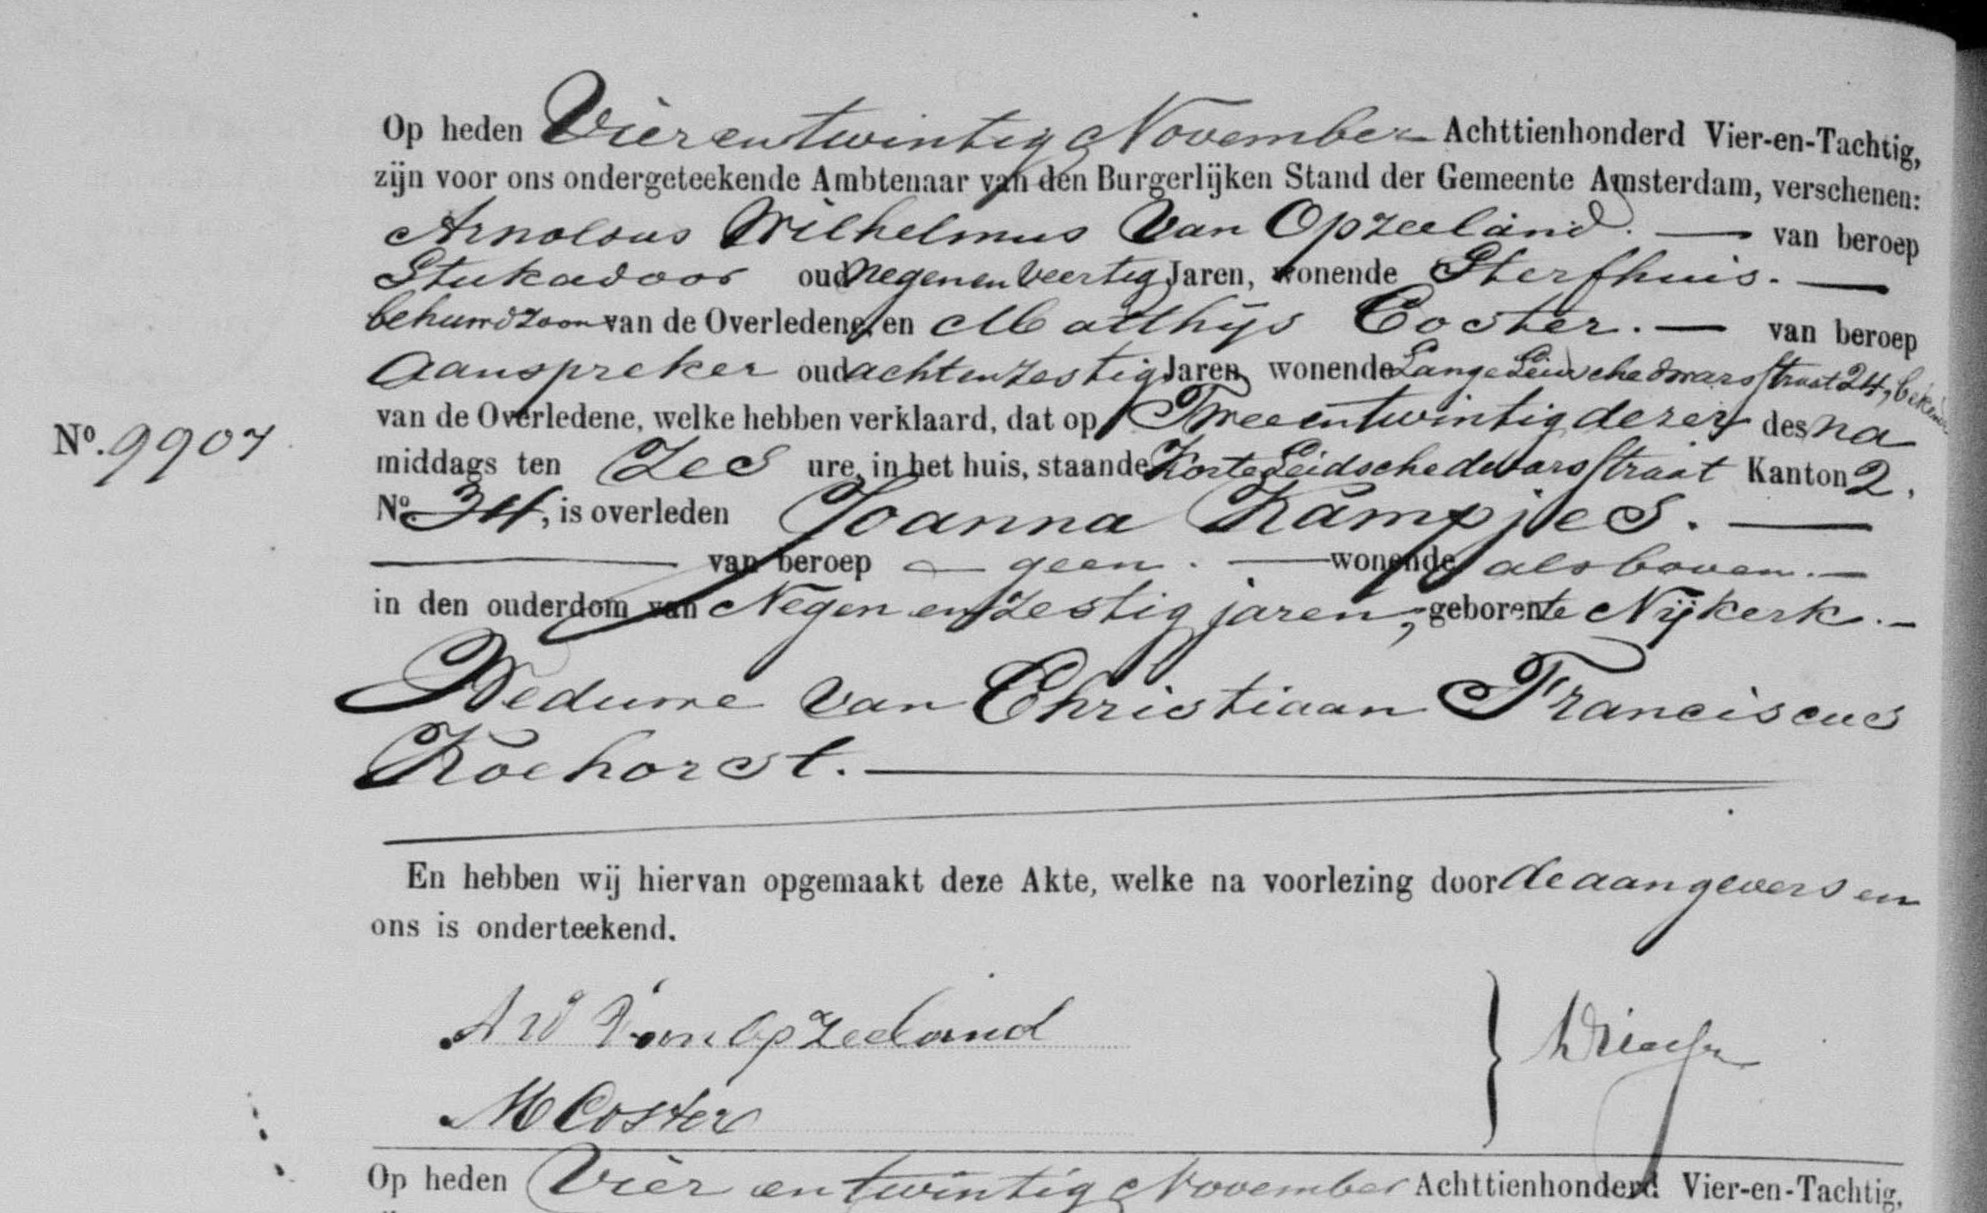 Op heden Vierentwintig November Achttienhonderd Vier-en-Tachtig,
zijn voor ons ondergeteekende Ambtenaar van den Burgerlijken Stand der Gemeente Amsterdam, verschenen:
Arnoldus Wilhelmus Van Opzeeland. — van beroep
Stukadoor oud negenenveertig Jaren, wonende Sterfhuis. —
behuwdzoon van de Overledene, en Matthijs Coster. — van beroep
Aanspreker oud achtenzestig Jaren, wonende Lange Leidschedwarsstraat 24, bekende
van de Overledene, welke hebben verklaard, dat op Tweeentwintig dezer des na
No. 9907
middags ten Zes ure, in het huis, staande Korte Leidschedwarsstraat Kanton 2,
No. 34, is overleden Joanna Kampjes. —
— van beroep — geen. — wonende als boven. —
in den ouderdom van Negenenzestig jaren, geboren te Nijkerk. —
Weduwe van Christiaan Franciscus
Koehorst. —
En hebben wij hiervan opgemaakt deze Akte, welke na voorlezing door de aangevers en
ons is onderteekend.
A W Van Opzeeland
M Coster
Op heden Vier en twintig November Achttienhonderd Vier-en-Tachtig,